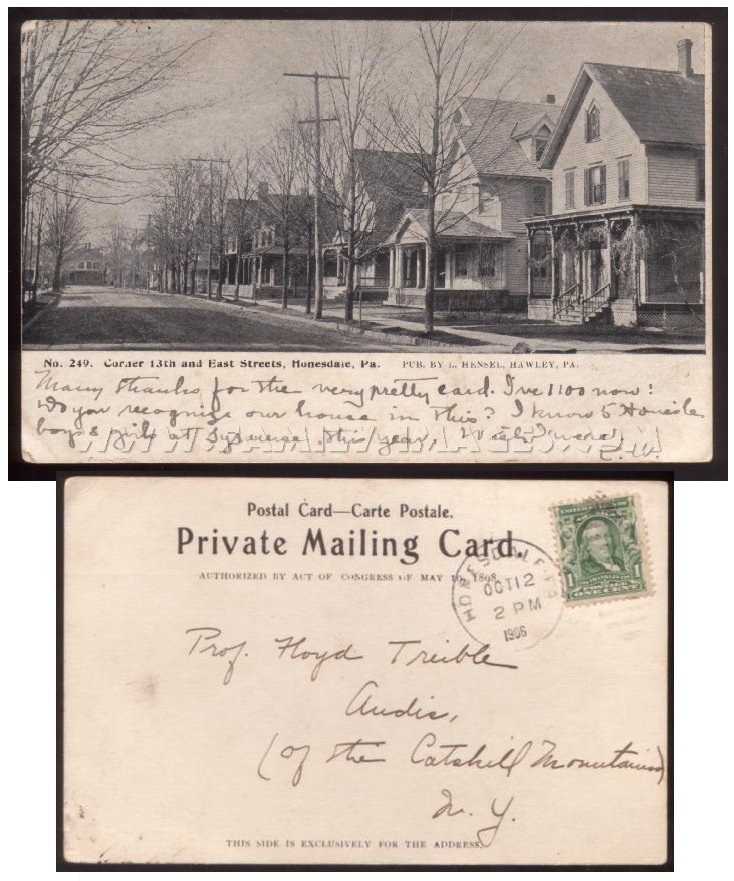 No. 249. Corner 13th and East Streets, Honesdale, Pa. PUB. BY L. HENSEL, HAWLEY, PA.
Many thanks for the very pretty card. I've 1100 now!
Do you recognize our house in this? I know 5 Honesdale
boys & girls at Syracuse this year, Wish I were,
Postal Card—Carte Postale.
Private Mailing Card.
AUTHORIZED BY ACT OF CONGRESS OF MAY 19, 1898.
HONESDALE PA
OCT 12
2 PM
1906
1 1
POSTAGE
ONE CENT
Prof. Floyd Treible
Andis,
(of the Catskill Mountains)
N. Y.
THIS SIDE IS EXCLUSIVELY FOR THE ADDRESS.